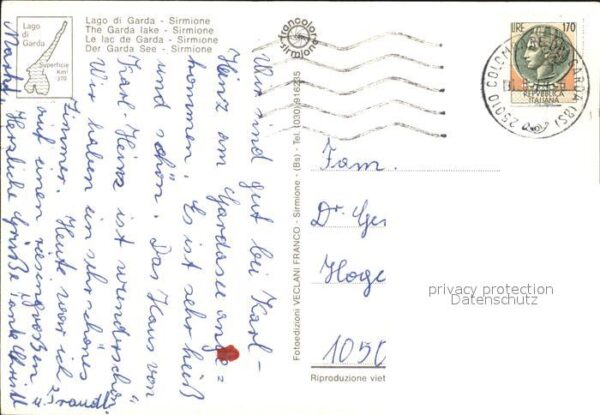 Lago
di
Garda
Superficie
Km²
370
Lago di Garda - Sirmione
The Garda lake - Sirmione
Le lac de Garda - Sirmione
Der Garda See - Sirmione
francolor
sirmione
LIRE 170
REPUBBLICA
ITALIANA
25010 COLOM GARDA (BS)
Wir sind gut bei Karl-
Heinz am Gardasee ange=
kommen. Es ist sehr heiß
und schön. Das Haus von
Karl Heinz ist wunderschön
Wir haben ein sehr schönes
Zimmer. Heute war ich
auf einen riesengroßen
Markt. Herzliche Grüße
Traudl
Fotoedizioni VECLANI FRANCO - Sirmione - (Bs) - Tel. (030) 916235
Fam.
Dr. Ger
Hoge
1050
Riproduzione viet
privacy protection
Datenschutz